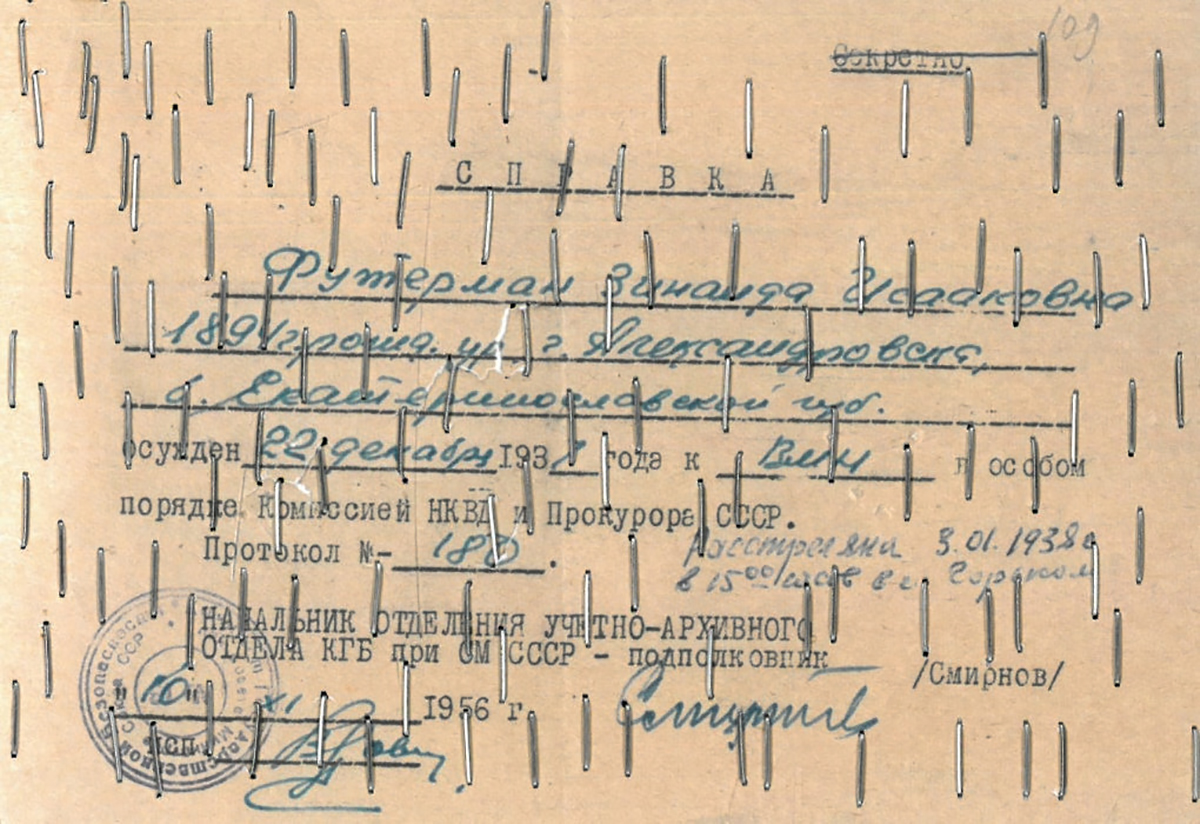 109
Секретно
СПРАВКА
Футерман Зинаида Исааковна
1891 г. рожд. ур. г. Александровска,
б. Екатеринославской губ.
осужден 22 декабря 1937 года к ВМН в особом
порядке Комиссией НКВД и Прокурора СССР.
Протокол №- 180.
Расстреляна 3.01.1938 г.
в 15⁰⁰ часов в г. Горьком
НАЧАЛЬНИК ОТДЕЛЕНИЯ УЧЕТНО-АРХИВНОГО
ОТДЕЛА КГБ при СМ СССР - подполковник
/Смирнов/
"10" XI 1956 г.
ИСП.